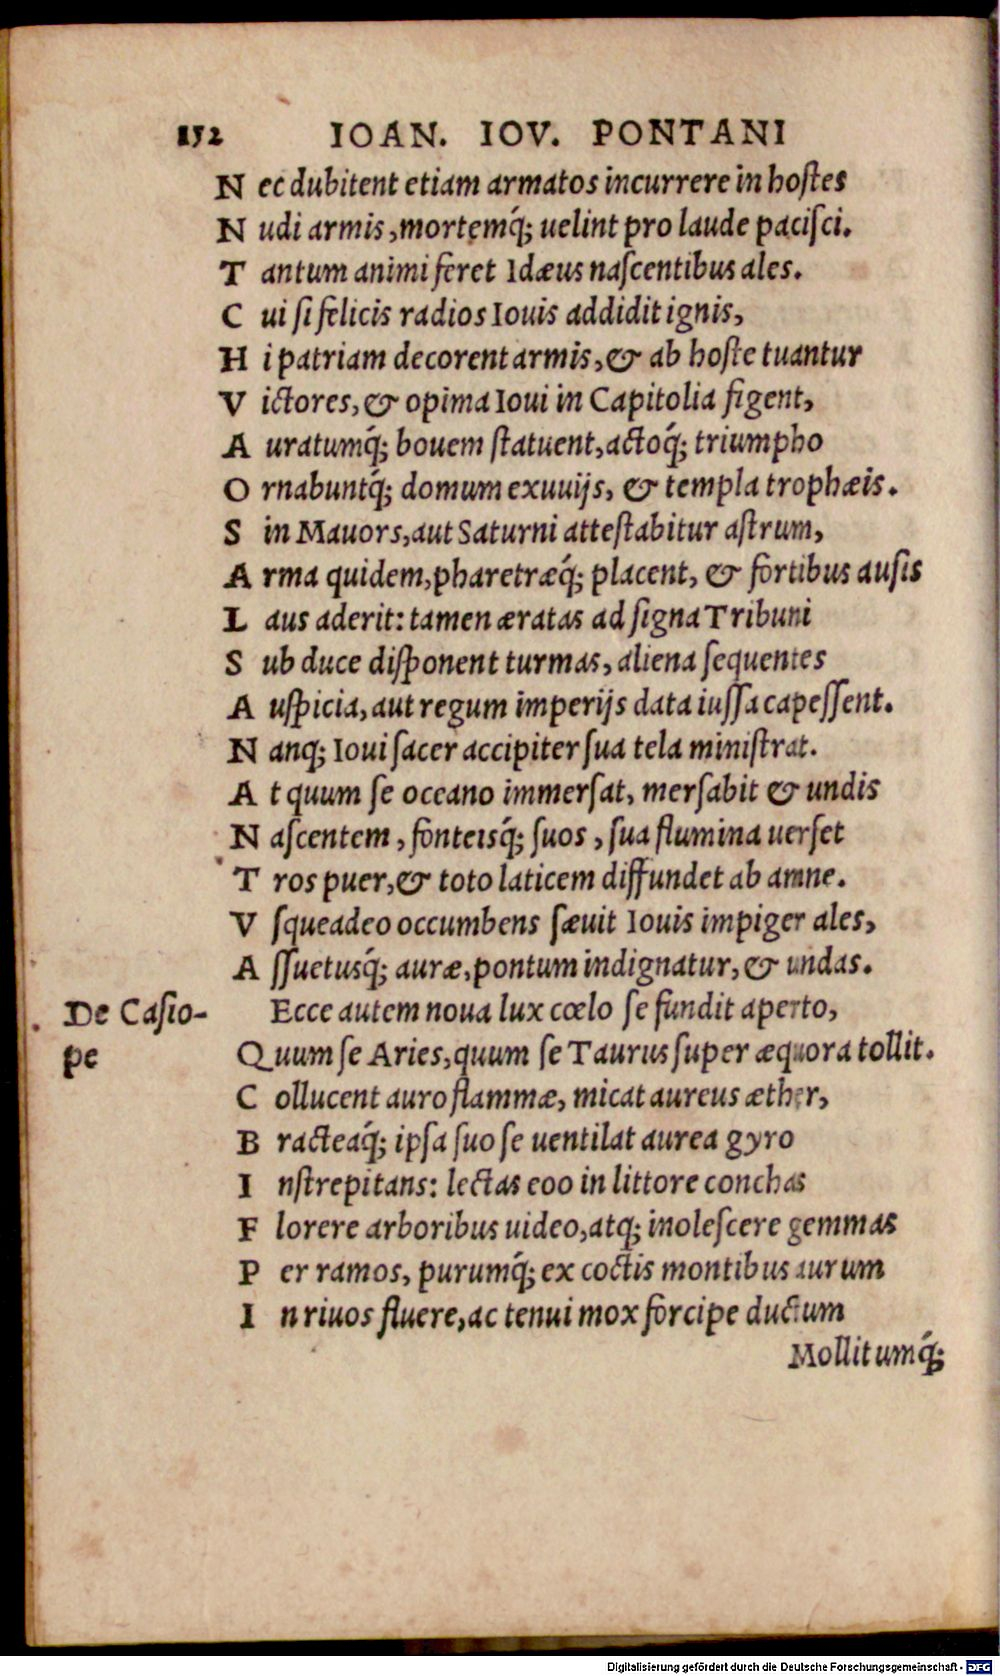 152 IOAN. IOV. PONTANI
Nec dubitent etiam armatos incurrere in hoſtes
Nudi armis, mortemq́; uelint pro laude paciſci.
Tantum animi feret Idæus naſcentibus ales.
Cui ſi felicis radios Iouis addidit ignis,
Hi patriam decorent armis, & ab hoſte tuantur
Victores, & opima Ioui in Capitolia figent,
Auratumq́; bouem ſtatuent, actoq́; triumpho
Ornabuntq́; domum exuuijs, & templa trophæis.
Sin Mauors, aut Saturni atteſtabitur aſtrum,
Arma quidem, pharetræq́; placent, & fortibus auſis
Laus aderit: tamen æratas ad ſigna Tribuni
Sub duce diſponent turmas, aliena ſequentes
Auſpicia, aut regum imperijs data iuſſa capeſſent.
Nanq; Ioui ſacer accipiter ſua tela miniſtrat.
At quum ſe oceano immerſat, merſabit & undis
Naſcentem, fonteisq́; ſuos, ſua flumina uerſet
Tros puer, & toto laticem diffundet ab amne.
Vſqueadeo occumbens ſæuit Iouis impiger ales,
Aſſuetusq́; auræ, pontum indignatur, & undas.
De Caſio-
pe
Ecce autem noua lux cœlo ſe fundit aperto,
Quum ſe Aries, quum ſe Taurus ſuper æquora tollit.
Collucent auro flammæ, micat aureus æther,
Bracteaq́; ipſa ſuo ſe uentilat aurea gyro
Inſtrepitans: lectas eoo in littore conchas
Florere arboribus uideo, atq; inoleſcere gemmas
Per ramos, purumq́; ex coctis montibus aurum
In riuos fluere, ac tenui mox forcipe ductum
Mollitumq́;
Digitalisierung gefördert durch die Deutsche Forschungsgemeinschaft - DFG